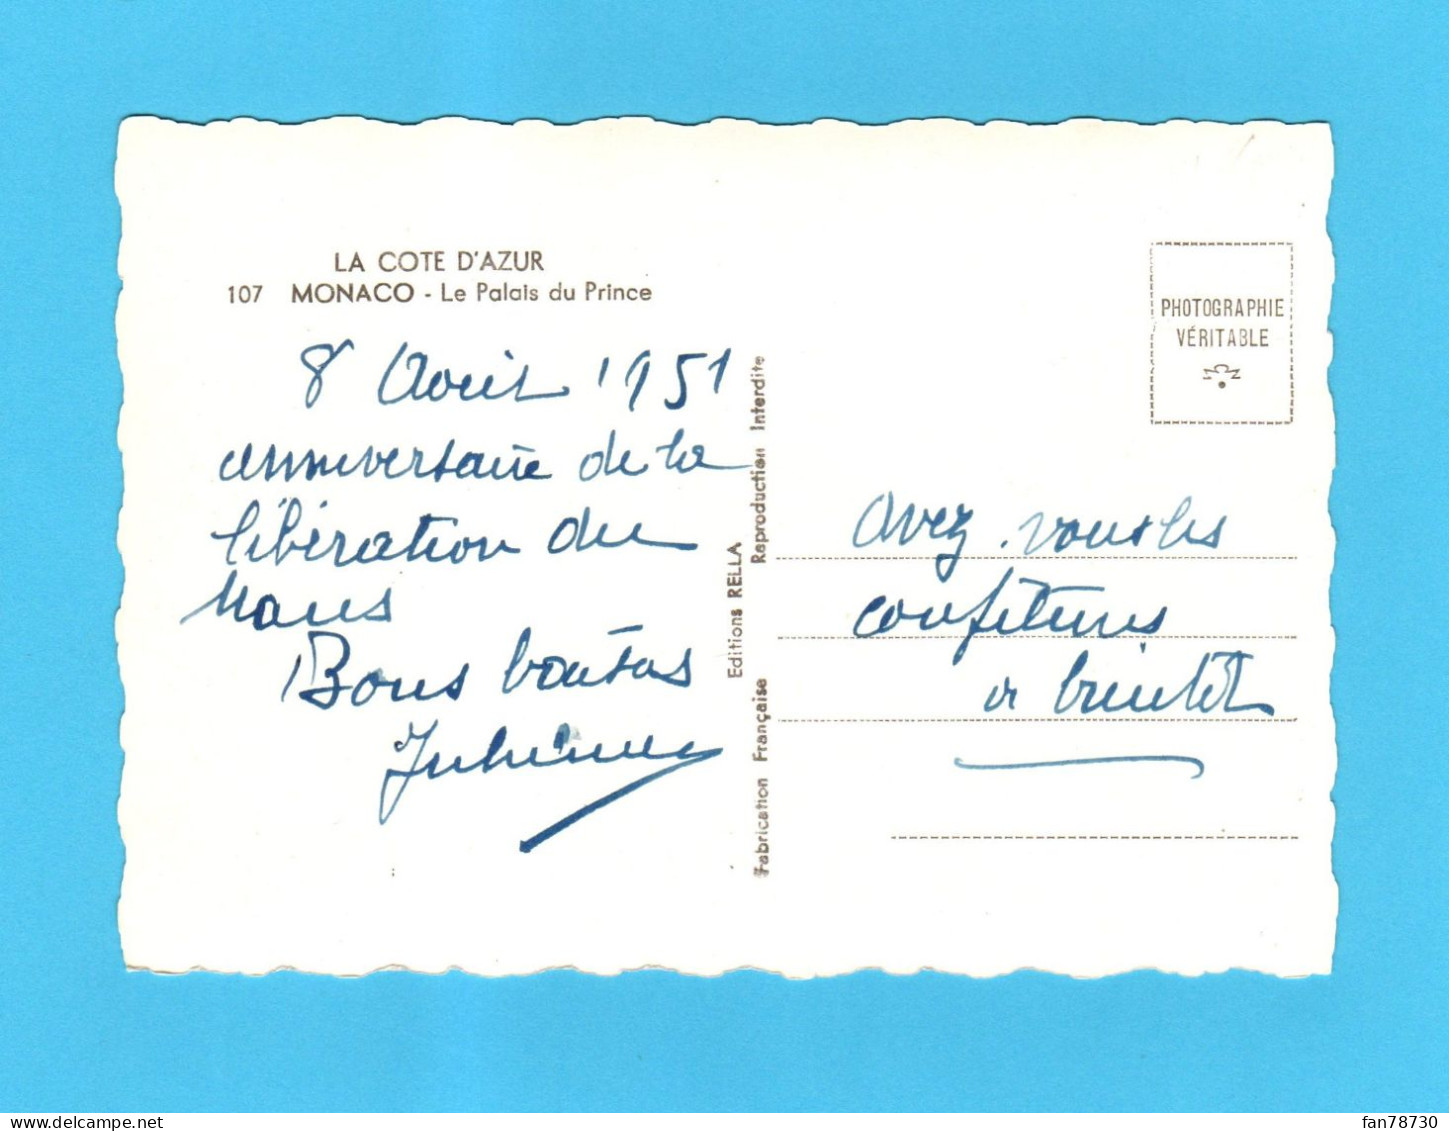 LA COTE D'AZUR
107 MONACO - Le Palais du Prince
8 Août 1951
anniversaire de la
libération du
Mans
Bons baisers
Avez-vous les
confitures
à bientôt
PHOTOGRAPHIE
VÉRITABLE
Editions RELLA
Fabrication Française Reproduction Interdite
fan78730